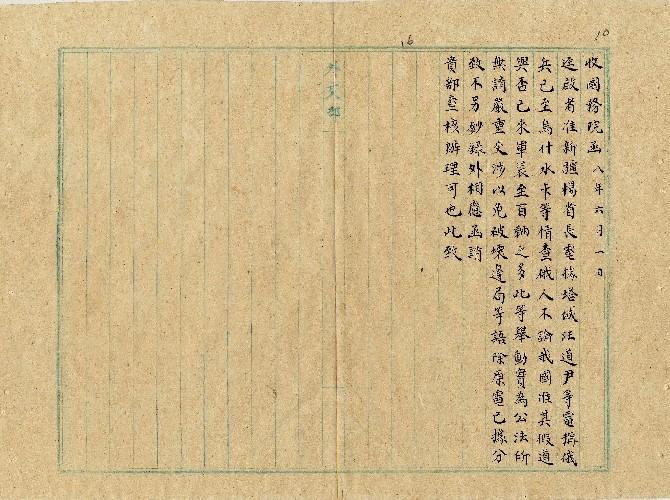 收國務院函 八年六月一日
逕啟者准新疆楊省長電據塔城汪道尹等電稱俄
兵已至烏什水卡等情查俄人不論我國准其假道
與否已來軍裝至百輛之多此等舉動實為公法所
無請嚴重交涉以免破壞邊局等語除原電已據分
致不另鈔錄外相應函請
貴部查核辦理可也此致
外交部
16
10